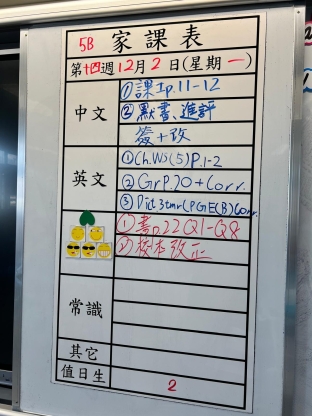 5B 家課表
第十四週12月2日(星期一)
中文
①課Ip.11-12
②默書、進評
簽+改
英文
①Ch.WS(5)P.1-2
②GrP.20+Corr.
③Dict 3tmr(PGE(B)Corr.
①書p22Q1-Q8
②校本改正
常識
其它
值日生
2